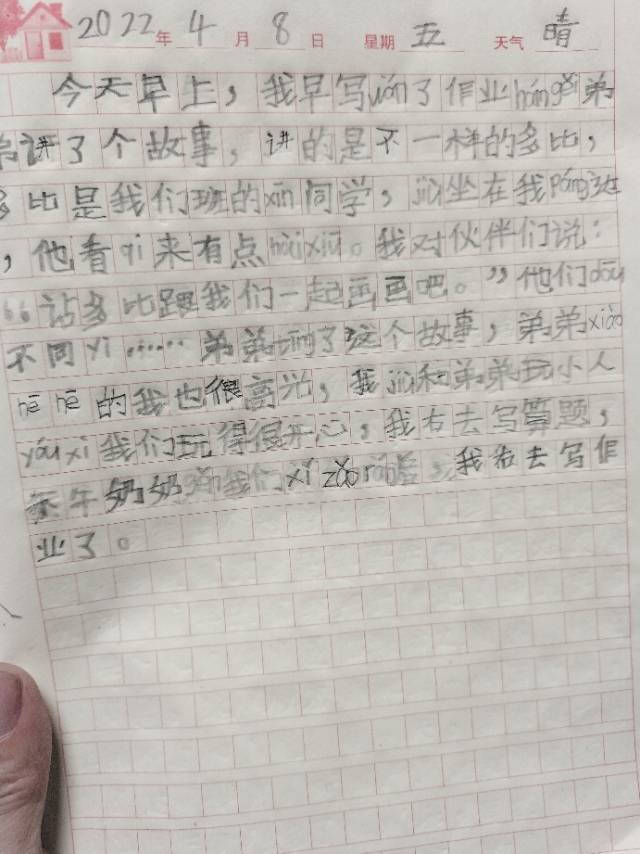 2022年 4月 8日 星期 五 天气 晴
今天早上，我早写uán了作业hángěi弟
弟讲了个故事，讲的是不一样的多比，
多比是我们班的xīn同学，jiù坐在我páng
，他看qi来有点hàixiū。我对伙伴们说：
“让多比跟我们一起画画吧。”他们dōu
不同yi……弟弟tīng了这个故事，弟弟xiào
hē hē的我也很高兴，我jiù和弟弟玩小人
yóu xì我们玩得很开心，我右去写算题，
下午奶奶gěi我们xǐ zǎo，我右去写作
业了。